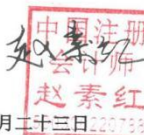 中国注册
会计师
赵素红
赵素红
月二十三日